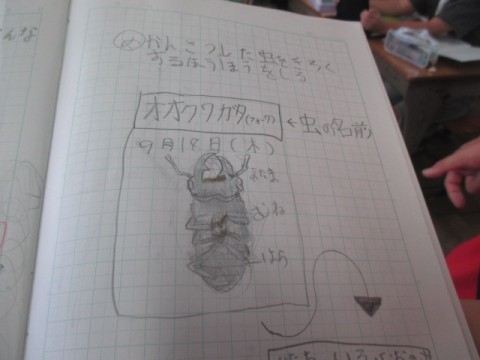 んな
め かんさつした虫をきろく
するほうほうをしろう
オオクワガタ(フォーク)
←虫の名前
9月18日(木)
あたま
むね
はら